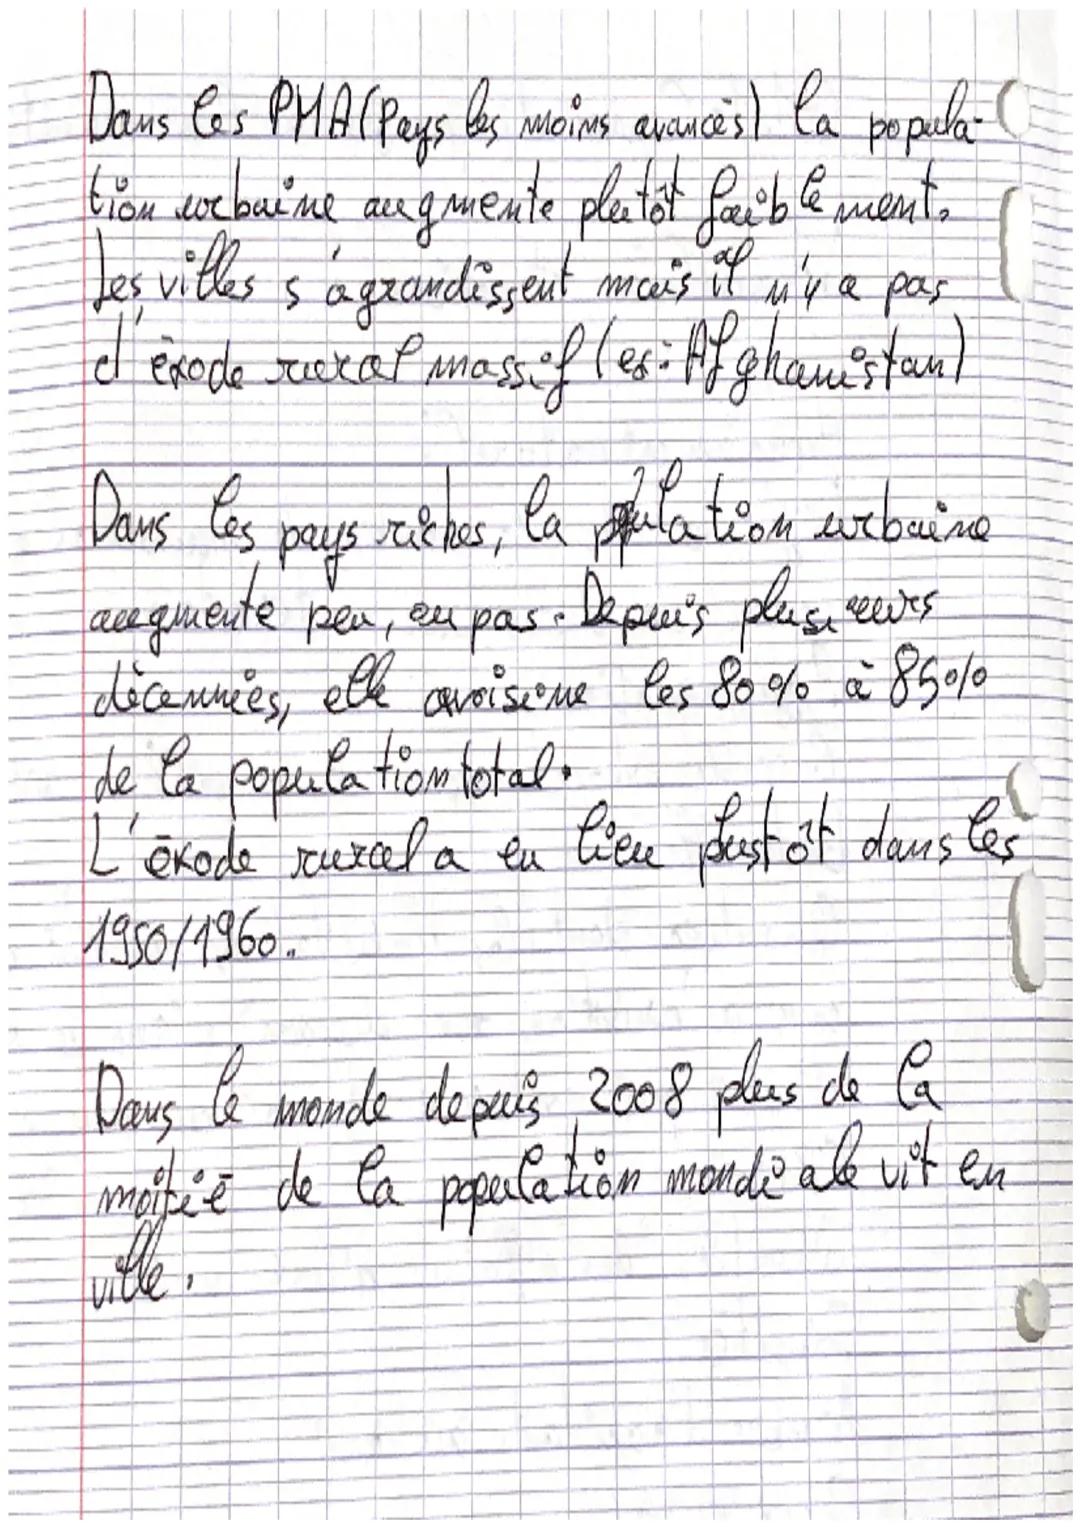 Dans les PMA (Pays les moins avancés) la popula-
tion urbaine augmente plutôt faiblement.
Les villes s'agrandissent mais il n'y a pas
d'éxode rural massif (ex: Afghanistan)
Dans les pays riches, la population urbaine
augmente peu, ou pas. Depuis plusieurs
décennies, elle avoisine les 80% à 85%
de la population total.
L'éxode rural a eu lieu plustôt dans les
1950/1960.
Dans le monde depuis 2008 plus de la
moitié de la population mondiale vit en
ville.